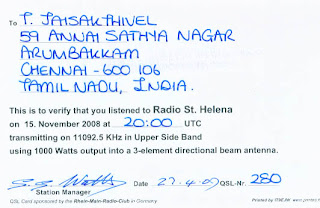 To T. JAISAKTHIVEL
59 ANNAI SATHYA NAGAR
ARUMBAKKAM
CHENNAI - 600 106
TAMIL NADU, INDIA.
This is to verify that you listened to Radio St. Helena
on 15. November 2008 at 20:00 UTC
transmitting on 11092.5 KHz in Upper Side Band
using 1000 Watts output into a 3-element directional beam antenna.
Date 27.4.09 QSL-Nr. 280
Station Manager
QSL Card sponsored by the Rhein-Main-Radio-Club in Germany
Printed by